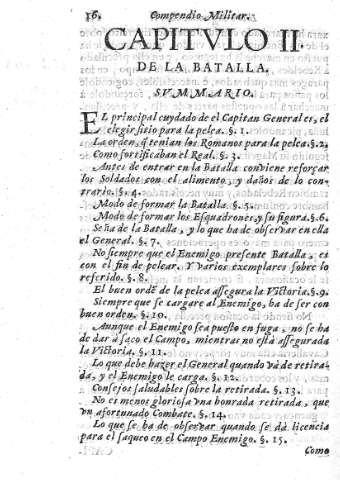 16. Compendio Militar.
CAPITVLO II.
DE LA BATALLA,
SVMMARIO.
EL principal cuydado de el Capitan General es, el
elegir sitio para la pelea. §. 1.
La orden, q̃ tenian los Romanos para la pelea. §. 2.
Como fortificaban el Real. §. 3.
Antes de entrar en la Batalla conviene reforçar
los Soldados con el alimento, y daños de lo con-
trario. §. 4.
Modo de formar la Batalla. §. 5.
Modo de formar los Esquadrones, y su figura. §. 6.
Seña de la Batalla, y lo que ha de observar en ella
el General. §. 7.
No siempre que el Enemigo presente Batalla, es
con el fin de pelear. Y varios exemplares sobre lo
referido. §. 8.
El buen ordẽ de la pelea assegura la Victoria. §. 9.
Siempre que se cargare al Enemigo, ha de ser con
buen orden. §. 10.
Aunque el Enemigo sea puesto en fuga, no se ha
de dar à saco el Campo, mientras no està assegurada
la Victoria. §. 11.
Lo que debe hazer el General quando và de retira-
da, y el Enemigo le carga. §. 12.
Consejos saludables sobre la retirada. §. 13.
No es menos gloriosa vna honrada retirada, que
vn afortunado Combate. §. 14.
Lo que se ha de observar quando se dà licencia
para el saqueo en el Campo Enemigo. §. 15.
Como